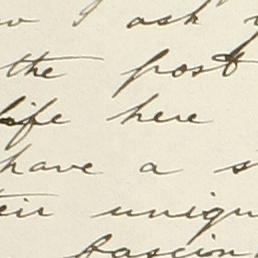 I ask
the post
life here
have a
their uniqu
fascin